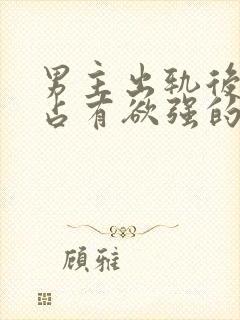 男主出轨後
占有欲强的
顾雅